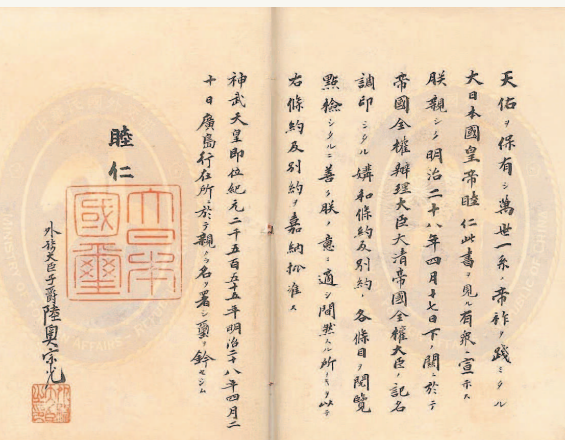 天佑ヲ保有シ萬世一系ノ帝祚ヲ踐ミタル
大日本國皇帝睦仁此書ヲ見ル有衆ニ宣示ス
朕親シク明治二十八年四月十七日下ノ關ニ於テ
帝國全權辨理大臣大清帝國全權大臣ト記名
調印シタル媾和條約及別約ノ各條目ヲ閲覽
點檢シタルニ善ク朕カ意ニ適シ間然スル所ナキヲ以テ
右條約及別約ヲ嘉納批准ス
神武天皇即位紀元二千五百五十五年明治二十八年四月二
十日廣島行在所ニ於テ親ラ名ヲ署シ璽ヲ鈐セシム
睦仁
大日本
國璽
外務大臣子爵陸奥宗光